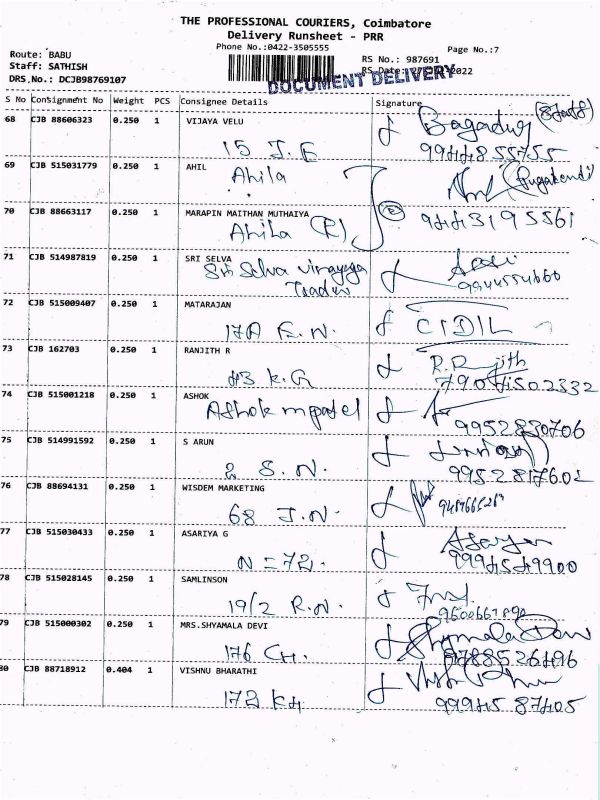 THE PROFESSIONAL COURIERS, Coimbatore
Delivery Runsheet - PRR
Phone No.:0422-3505555
Page No.:7
Route: BABU
Staff: SATHISH
DRS.No.: DCJB98769107
RS No.: 987691
RS Date: 2022
DOCUMENT DELIVERY
S No Consignment No Weight PCS Consignee Details Signature
68 CJB 88606323 0.250 1 VIJAYA VELU
15 J.E
9944855755
69 CJB 515031779 0.250 1 AHIL
Ahila
70 CJB 88663117 0.250 1 MARAPIN MAITHAN MUTHAIYA
Ahila (R) 9443195561
71 CJB 514987819 0.250 1 SRI SELVA
Sri Selva vinayaga
Traders
72 CJB 515009407 0.250 1 MATARAJAN
17A E.N. CIDIL
73 CJB 162703 0.250 1 RANJITH R
43 K.G 7904502332
74 CJB 515001218 0.250 1 ASHOK
Ashok mpatel 9952830706
75 CJB 514991592 0.250 1 S ARUN
2 S.N. 9952817602
76 CJB 88694131 0.250 1 WISDEM MARKETING
68 J.N.
77 CJB 515030433 0.250 1 ASARIYA G
N = 72. 9994549900
78 CJB 515028145 0.250 1 SAMLINSON
19/2 R.N.
79 CJB 515000302 0.250 1 MRS.SHYAMALA DEVI
176 CH. 9788526496
80 CJB 88718912 0.404 1 VISHNU BHARATHI
172 KH 9994587405